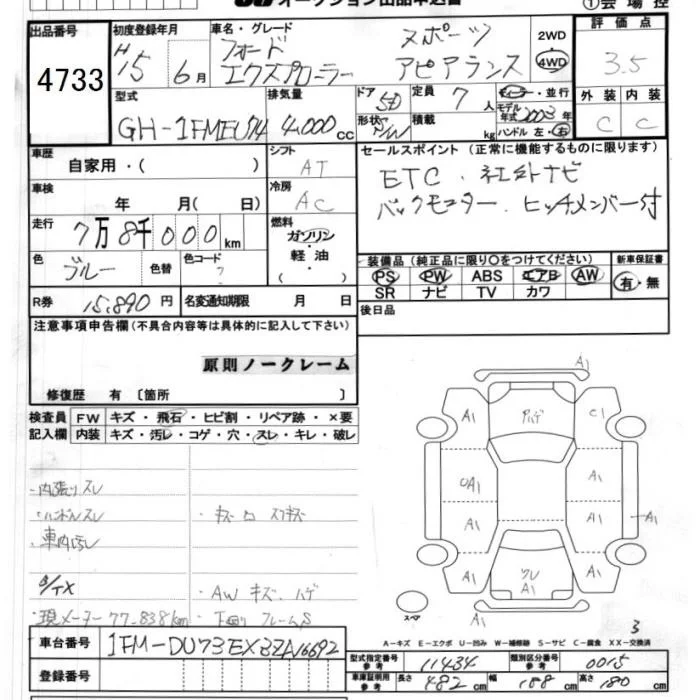 オークション出品申込書
①会場控
出品番号
4733
初度登録年月
H15年 6月
車名・グレード
フォード スポーツ
エクスプローラー アピアランス
2WD
4WD
評価点
3.5
外装 内装
C C
型式
GH-1FMEU74
排気量
4.000cc
ドア 5D
形状 S/W
定員 7人
積載 kg
ディーラー・並行
モデル年式 2003年
ハンドル 左・右
車歴
自家用・( )
シフト
AT
車検
年 月( 日)
冷房
AC
走行
7万8千000km
燃料
ガソリン
軽油
( )
色
ブルー
色替
色コード
R券 15,890円
名変通知期限 月 日
セールスポイント(正常に機能するものに限ります)
ETC.社外ナビ
バックモニター.ヒッチメンバー付
装備品(純正品に限り○をつけてください)
PS PW ABS エアB AW
SR ナビ TV カワ
新車保証書
有・無
後日品
注意事項申告欄(不具合内容等は具体的に記入して下さい)
原則ノークレーム
修復歴 有〔箇所 〕
検査員記入欄
FW キズ・飛石・ヒビ割・リペア跡・×要
内装 キズ・汚レ・コゲ・穴・スレ・キレ・破レ
・内張りスレ
・ハンドルスレ
・車内汚レ
・現メーター 77.838km
・AW キズ.ハゲ
・下廻り フレームS
A1
A1
ハゲ
C1
UA1
A1
A1
A1
A1
A1
A1
A1
スペア
3
A-キズ E-エクボ U-凹み W-補修跡 S-サビ C-腐食 XX-交換済
車台番号
1FM-DU73EX3ZA16692
登録番号
型式指定番号 参考 11434
類別区分番号 参考 0015
車庫証明用 参考 長さ 482cm 幅 188cm 高さ 180cm